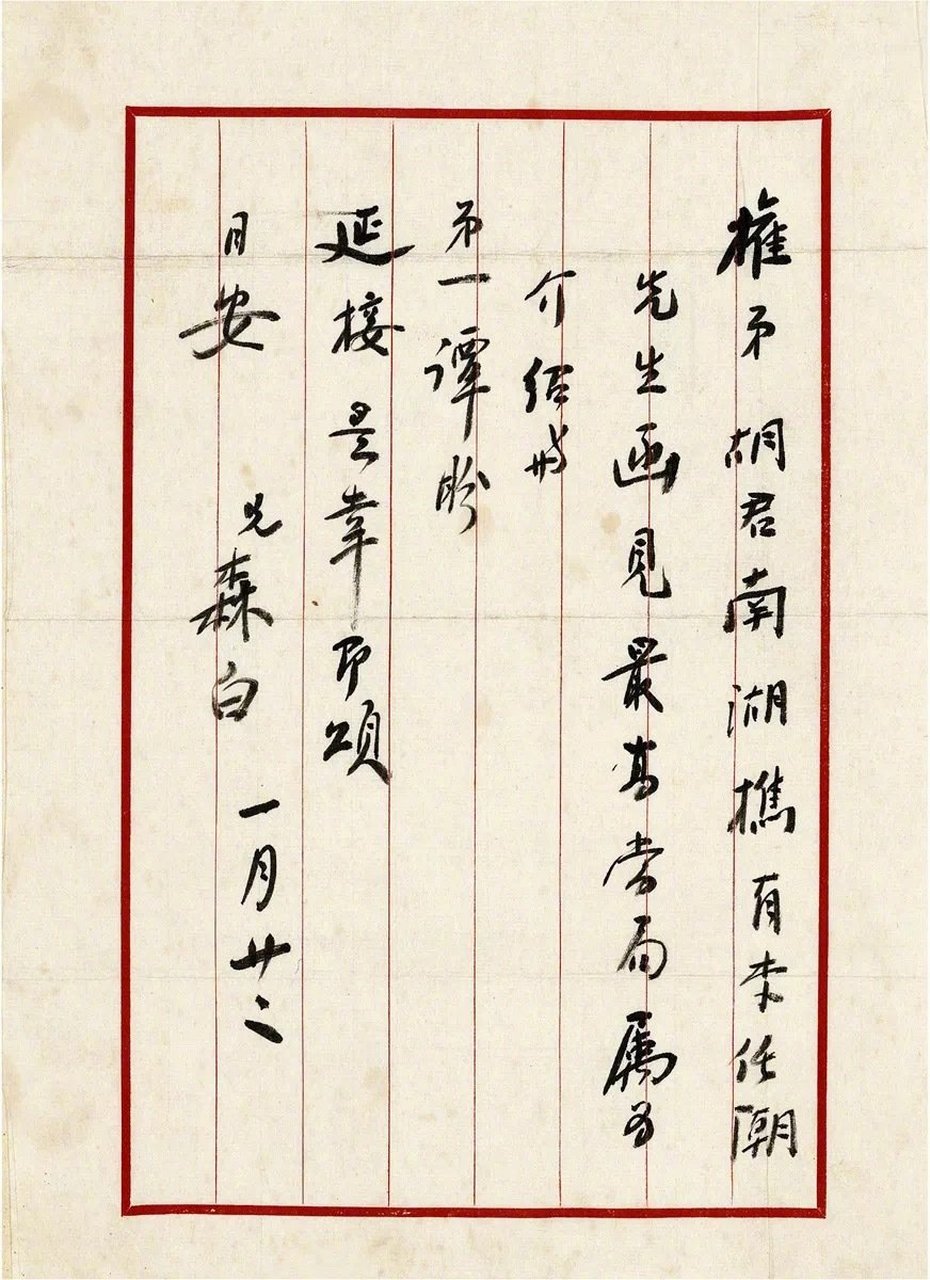 權弟 胡君南湖携有李任潮
先生函見最高當局屬為
介紹於
弟一譚盼
延接是幸即頌
日安 兄森白 一月廿二